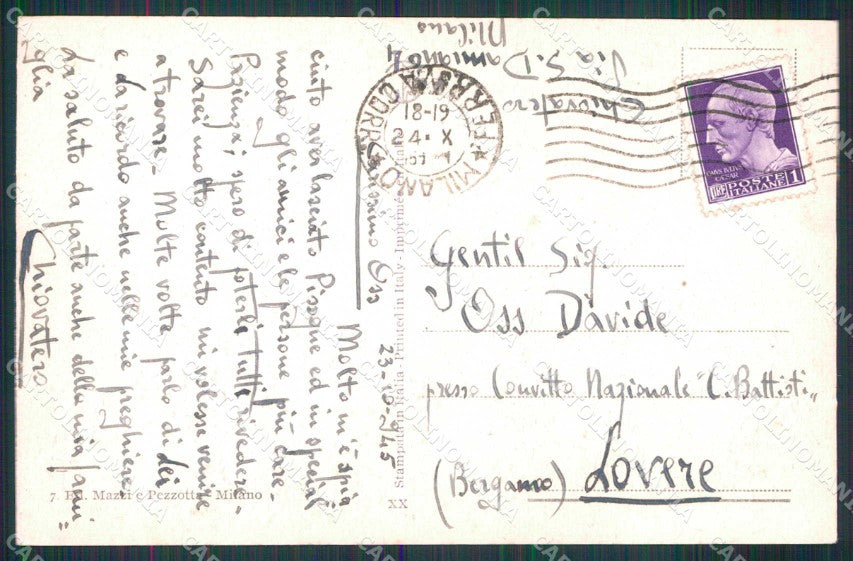 23-10-945
Carissimo Oss
Molto m'è spia=
ciuto aver lasciato Pisogne ed in special
modo gli amici e le persone più care.
Pazienza; spero di poterli tutti rivedere.
Sarei molto contento mi volesse venire
a trovare. Molte volte parlo di Lei
e La ricordo anche nelle mie preghiere
La saluto da parte anche della mia fami=
glia
Chiovatero
Chiovatero
Via S. Damiano 4
Milano
MILANO
FERR.A CORR.
18-19
24 X
LIRE POSTE ITALIANE 1
CAIVS IVLIVS CAESAR
Gentil Sig.
Oss Davide
presso Convitto Nazionale "C. Battisti"
(Bergamo) Lovere
7. Ed. Mazzi e Pezzotta - Milano
XX
Stampato in Italia - Printed in Italy - Imprimé
CARTOLINOMANIA